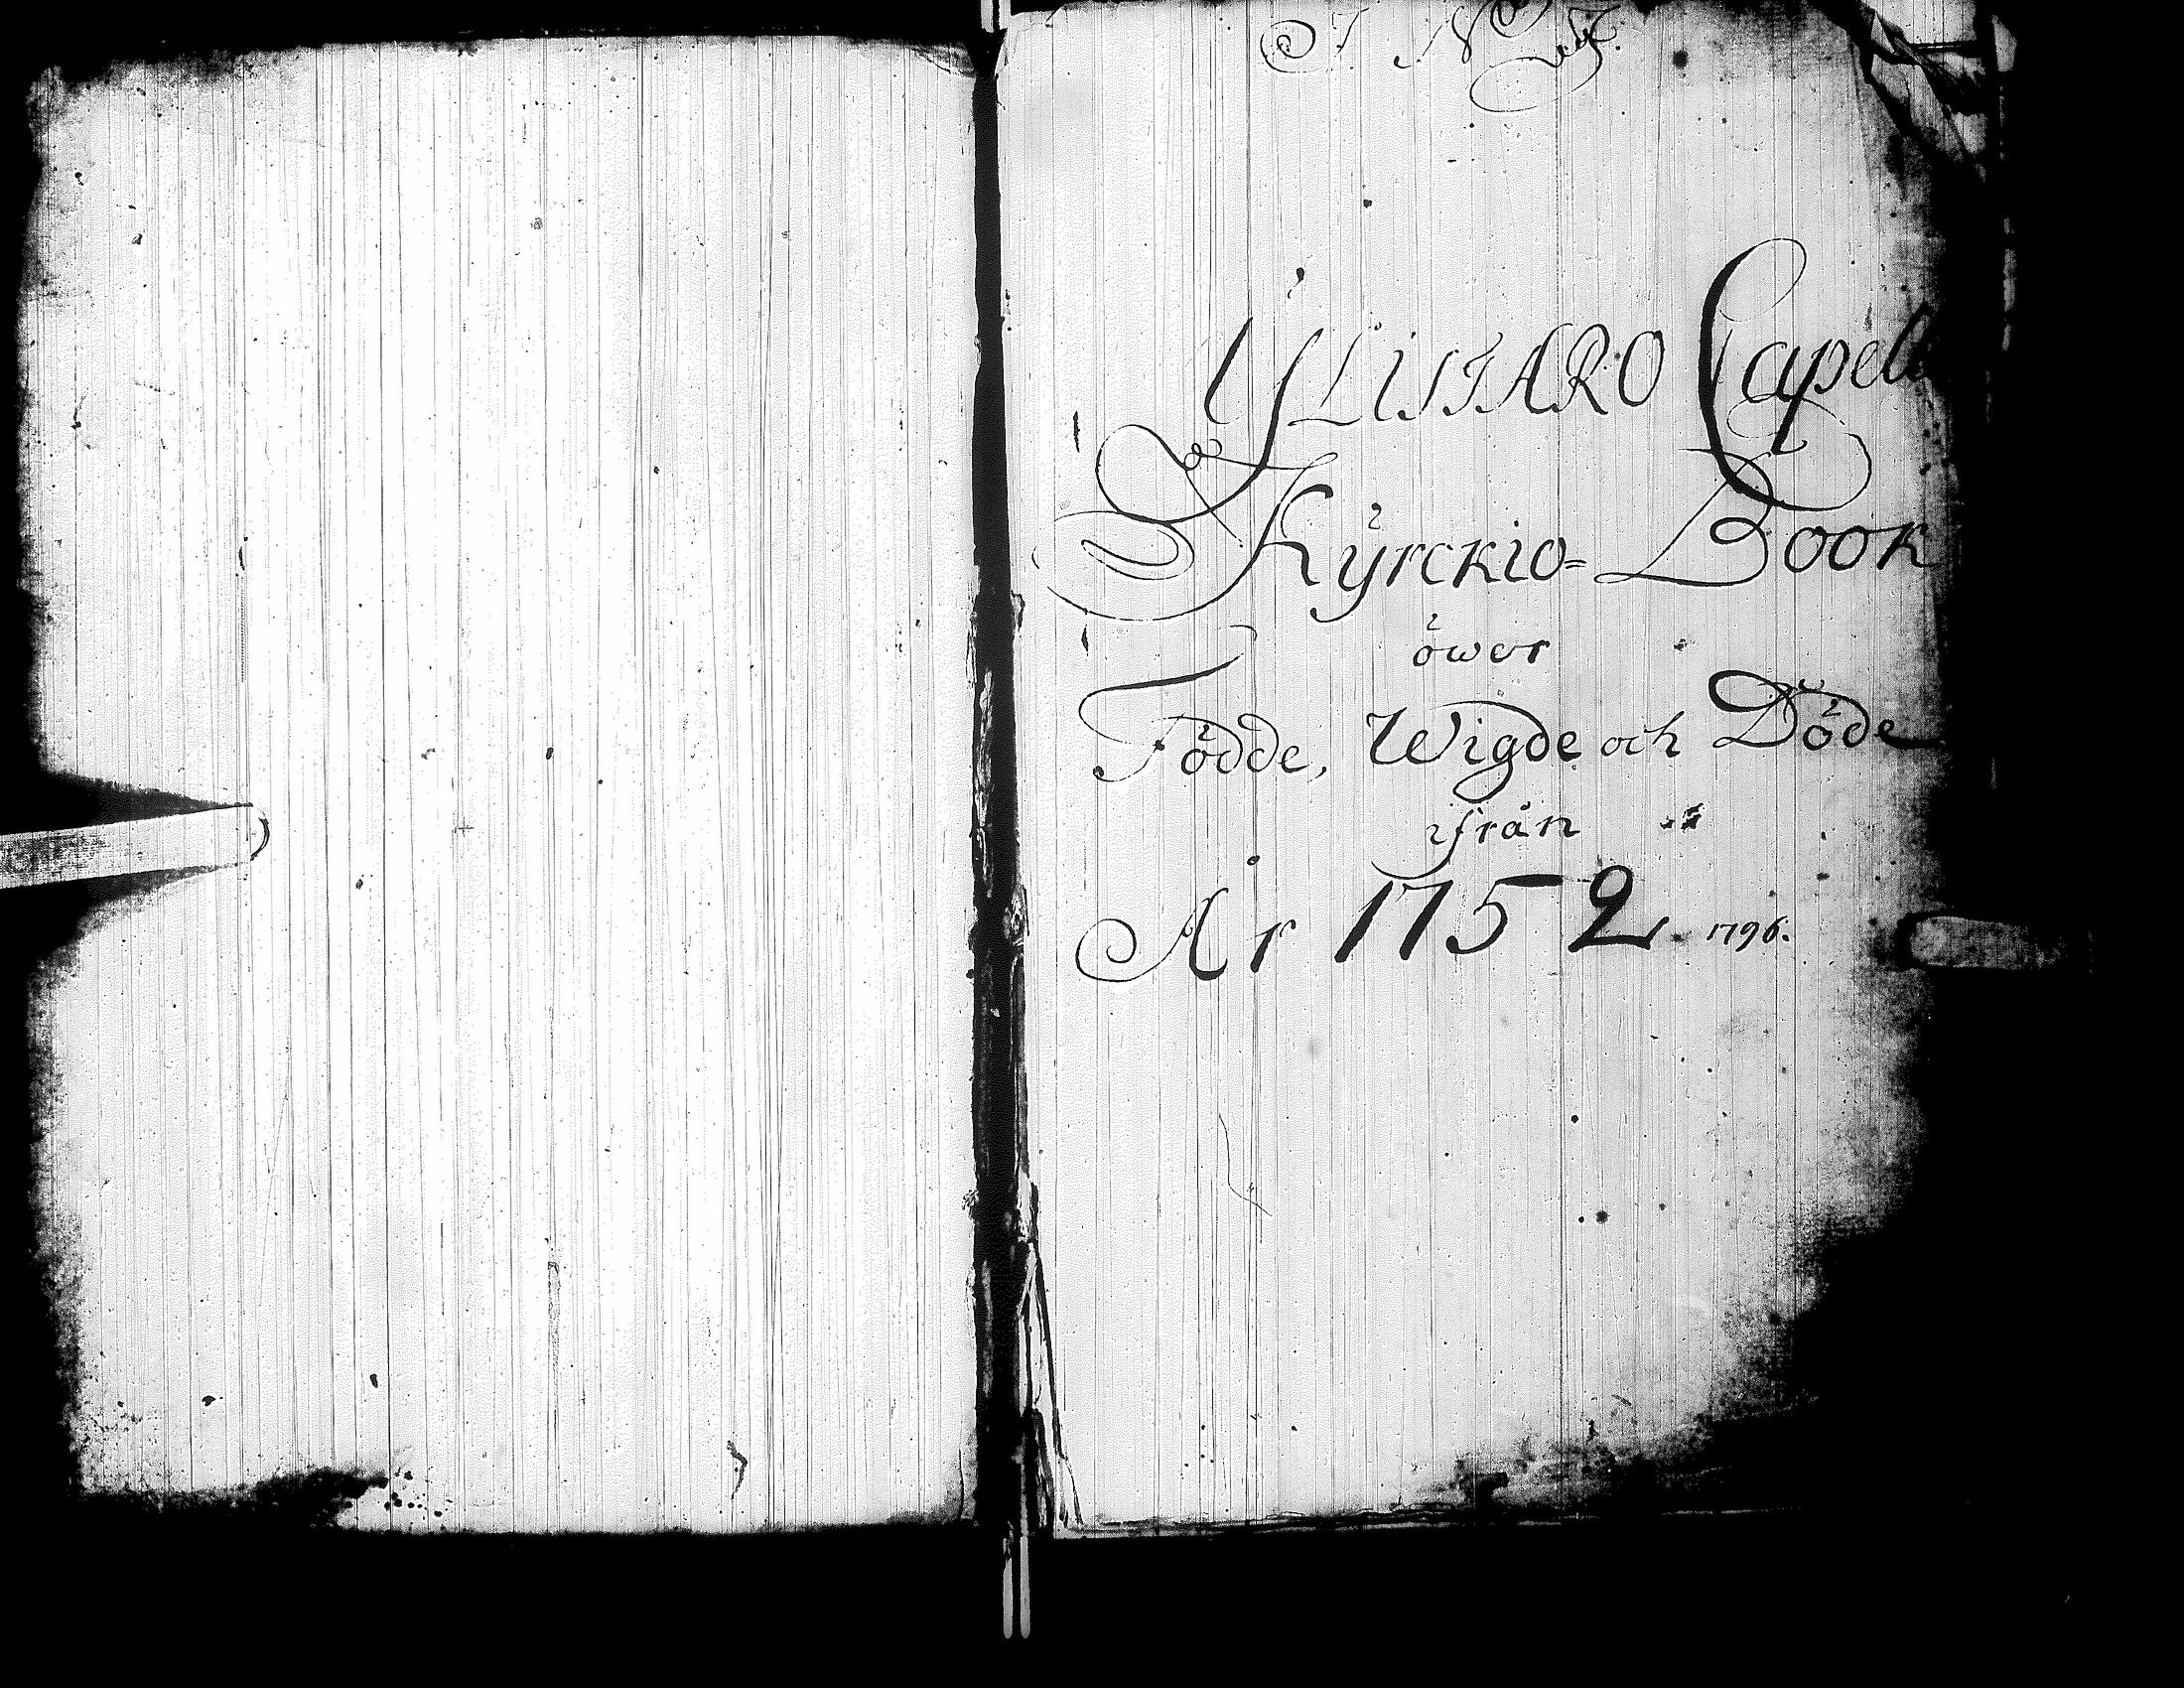 J N
YLISTARO Capell
Kÿrckio=Book
öwer
Födde, Wigde och Döde
ifrån
År 1752. 1796.